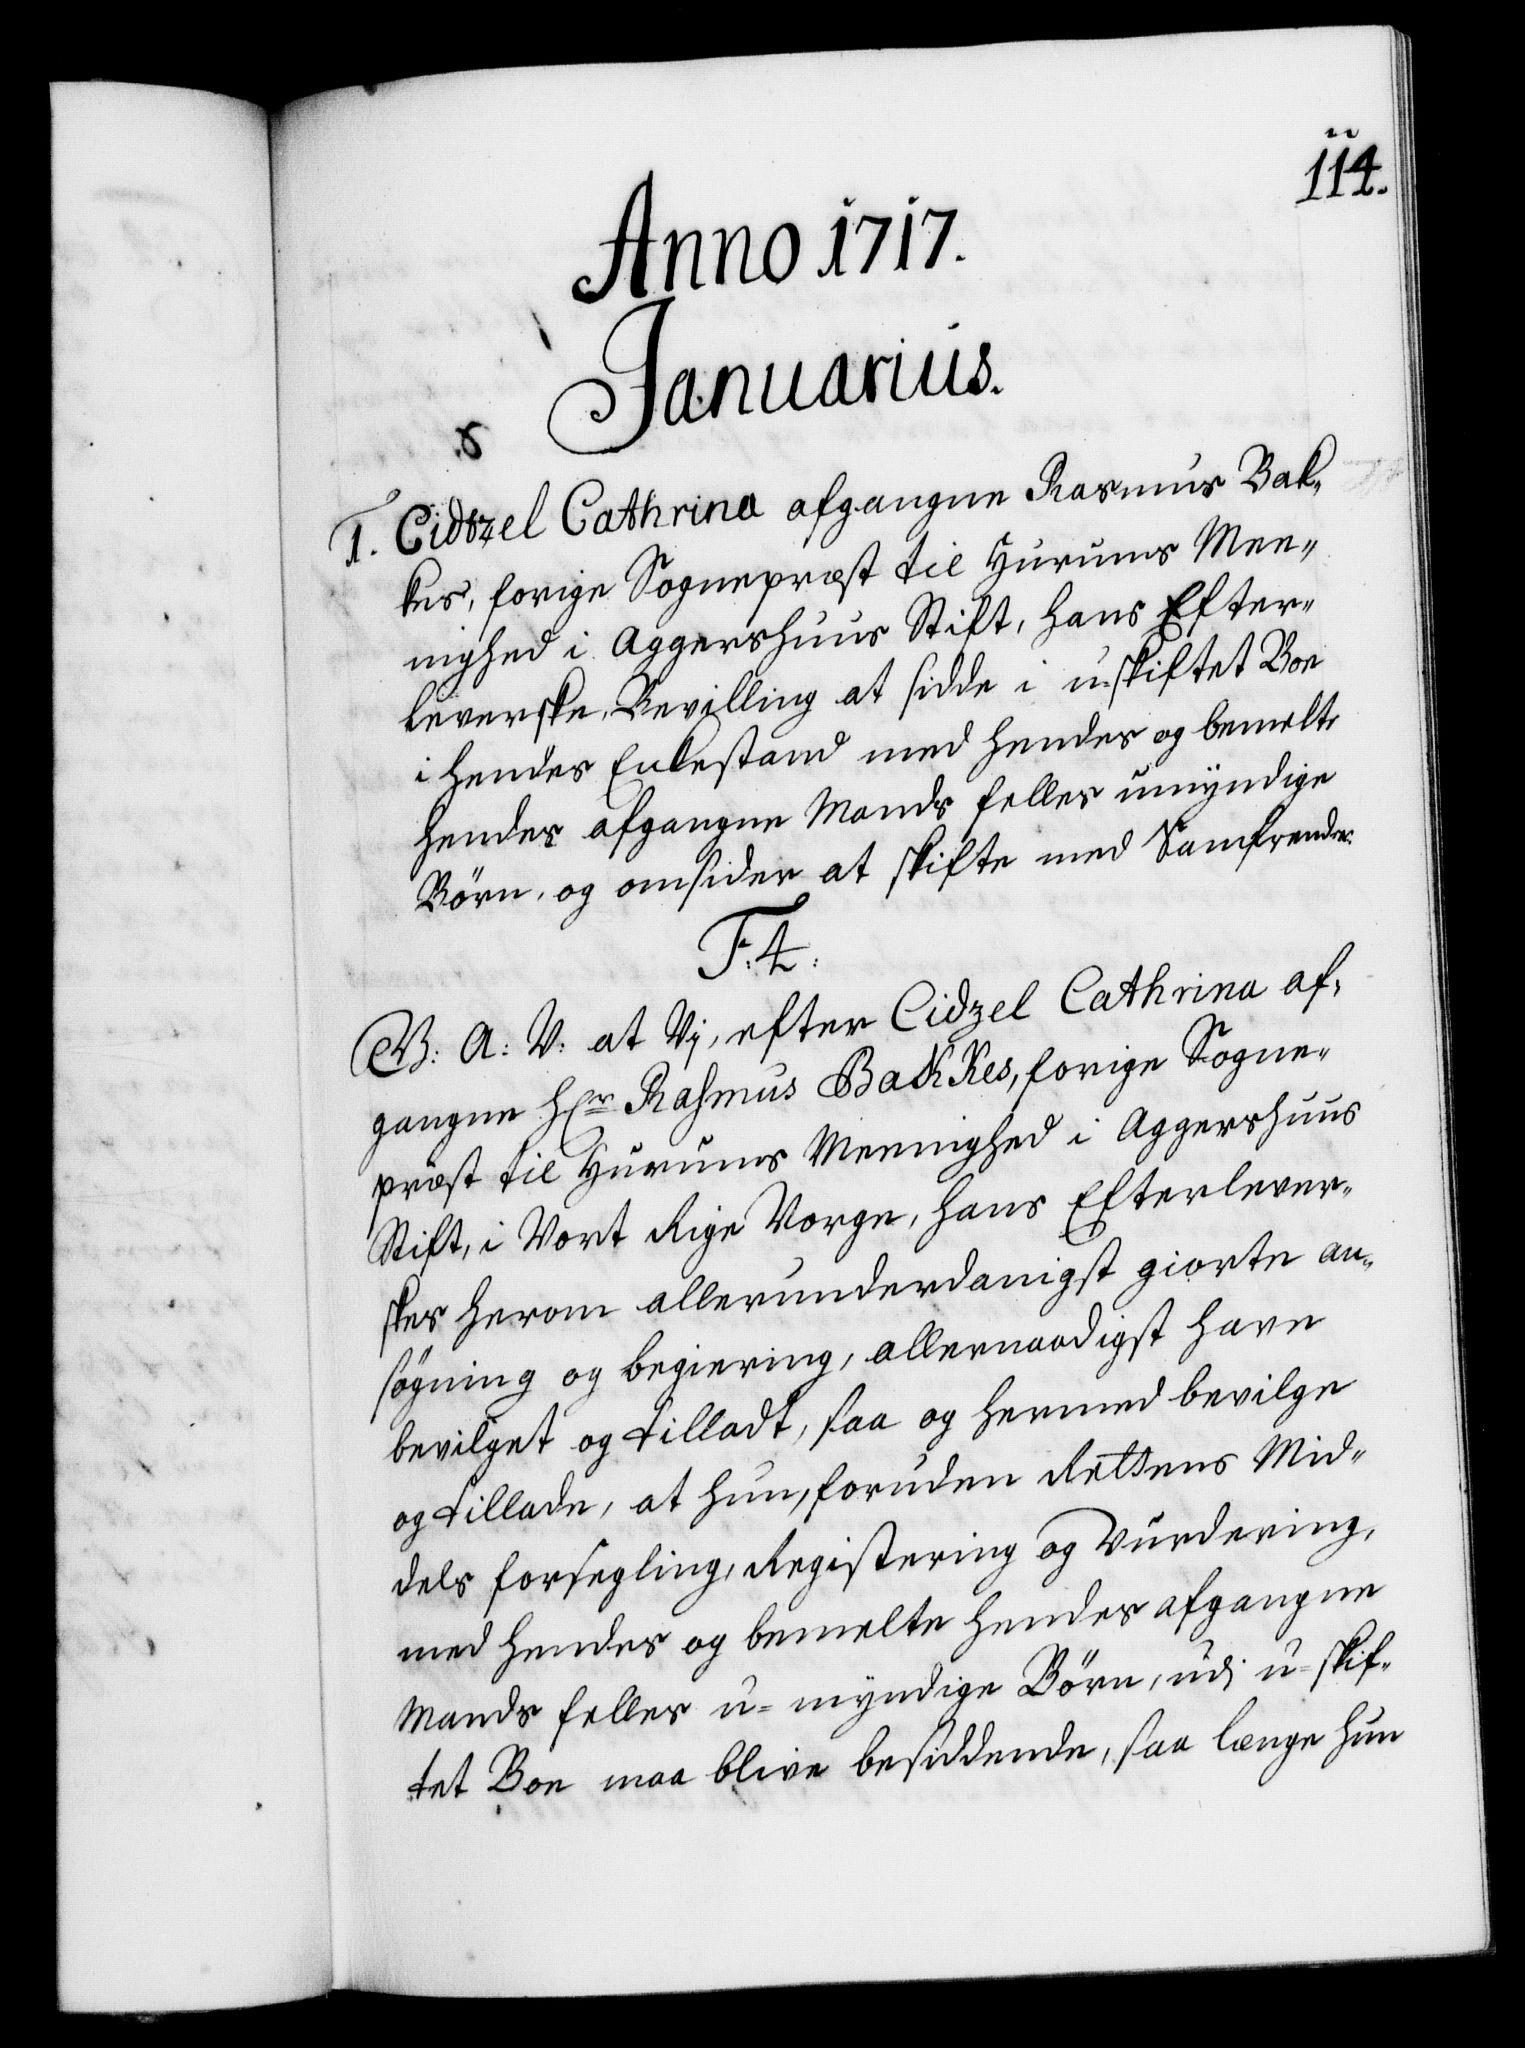 114.
Anno 1717.
Januarius.
1. Cidtzel Cathrina afgangne Rasmus Bak-
kes, forige Sognepræst til Hurums Mee-
nighed i Aggershuus Stift, hans Efter-
leverske, Bevilling at sidde i u-skiftet Boe
i hendes Enkestand med hendes og bemelte
hendes afgangne Mands felles umyndige
Börn, og omsider at skifte med Samfrender.
F. 4.
G. A: V: at Vj, efter Cidzel Cathrina af-
gangne Hr Rasmus Bakkes, forige Sogne-
præst til Hurums Meenighed i Aggershuus
Stift, i Vort Rige Norge, hans Efterlever-
skes herom allerunderdanigst giorte an-
søgning og begiering, allernaadigst have
bevilget og tilladt, saa og hermed bevilge
og tillade, at hun, foruden Rettens Mid-
dels forsegling, Registering og Vurdering,
med hendes og bemelte hendes afgangne
Mands felles u-myndige Börn, udj u-skif-
tet Boe maa blive besiddende, saa længe hun